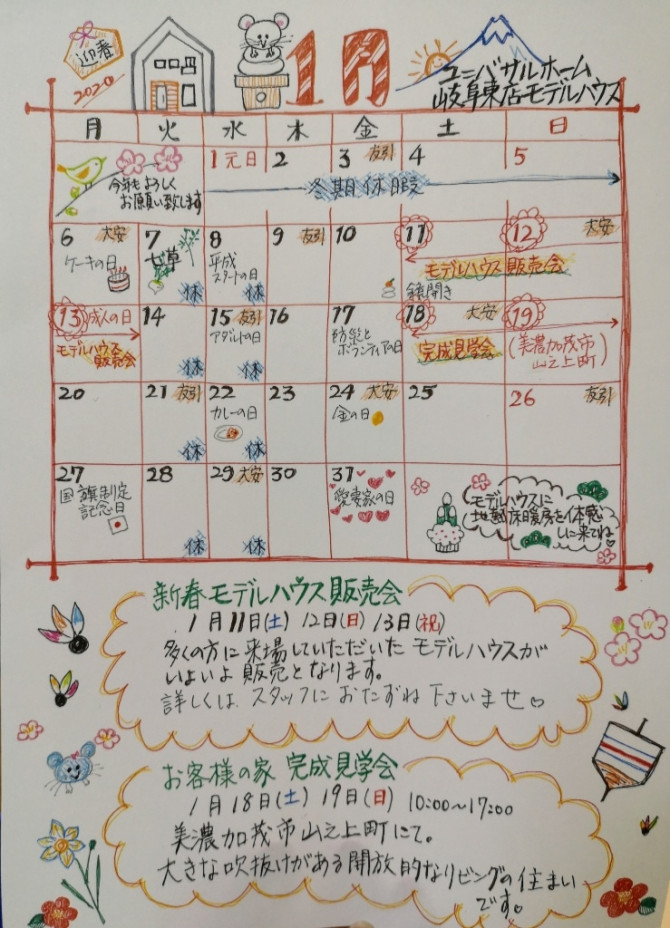 迎春
2020
1月
ユニバーサルホーム
岐阜東店モデルハウス
月 火 水 木 金 土 日
今年もよろしく
お願い致します
1 元日 2 3 友引 4 5
冬期休暇
6 大安 7 8 9 友引 10 11 12 大安
ケーキの日 七草 平成
スタートの日
モデルハウス販売会
鏡開き
休 休
13 成人の日 14 15 友引 16 17 18 大安 19
モデルハウス
販売会
アダルトの日 防災と
ボランティアの日
完成見学会 (美濃加茂市
山之上町)
休 休
20 21 友引 22 23 24 大安 25 26 友引
カレーの日 金の日
休 休
27 28 29 大安 30 31
国旗制定
記念日
愛妻家の日
モデルハウスに
地熱床暖房を体感
しに来てね
休 休
新春モデルハウス販売会
1月11日(土) 12日(日) 13日(祝)
多くの方に来場していただいたモデルハウスが
いよいよ販売となります。
詳しくは、スタッフにおたずね下さいませ♡
お客様の家 完成見学会
1月18日(土) 19日(日) 10:00〜17:00
美濃加茂市山之上町にて。
大きな吹抜けがある開放的なリビングの住まい
です。